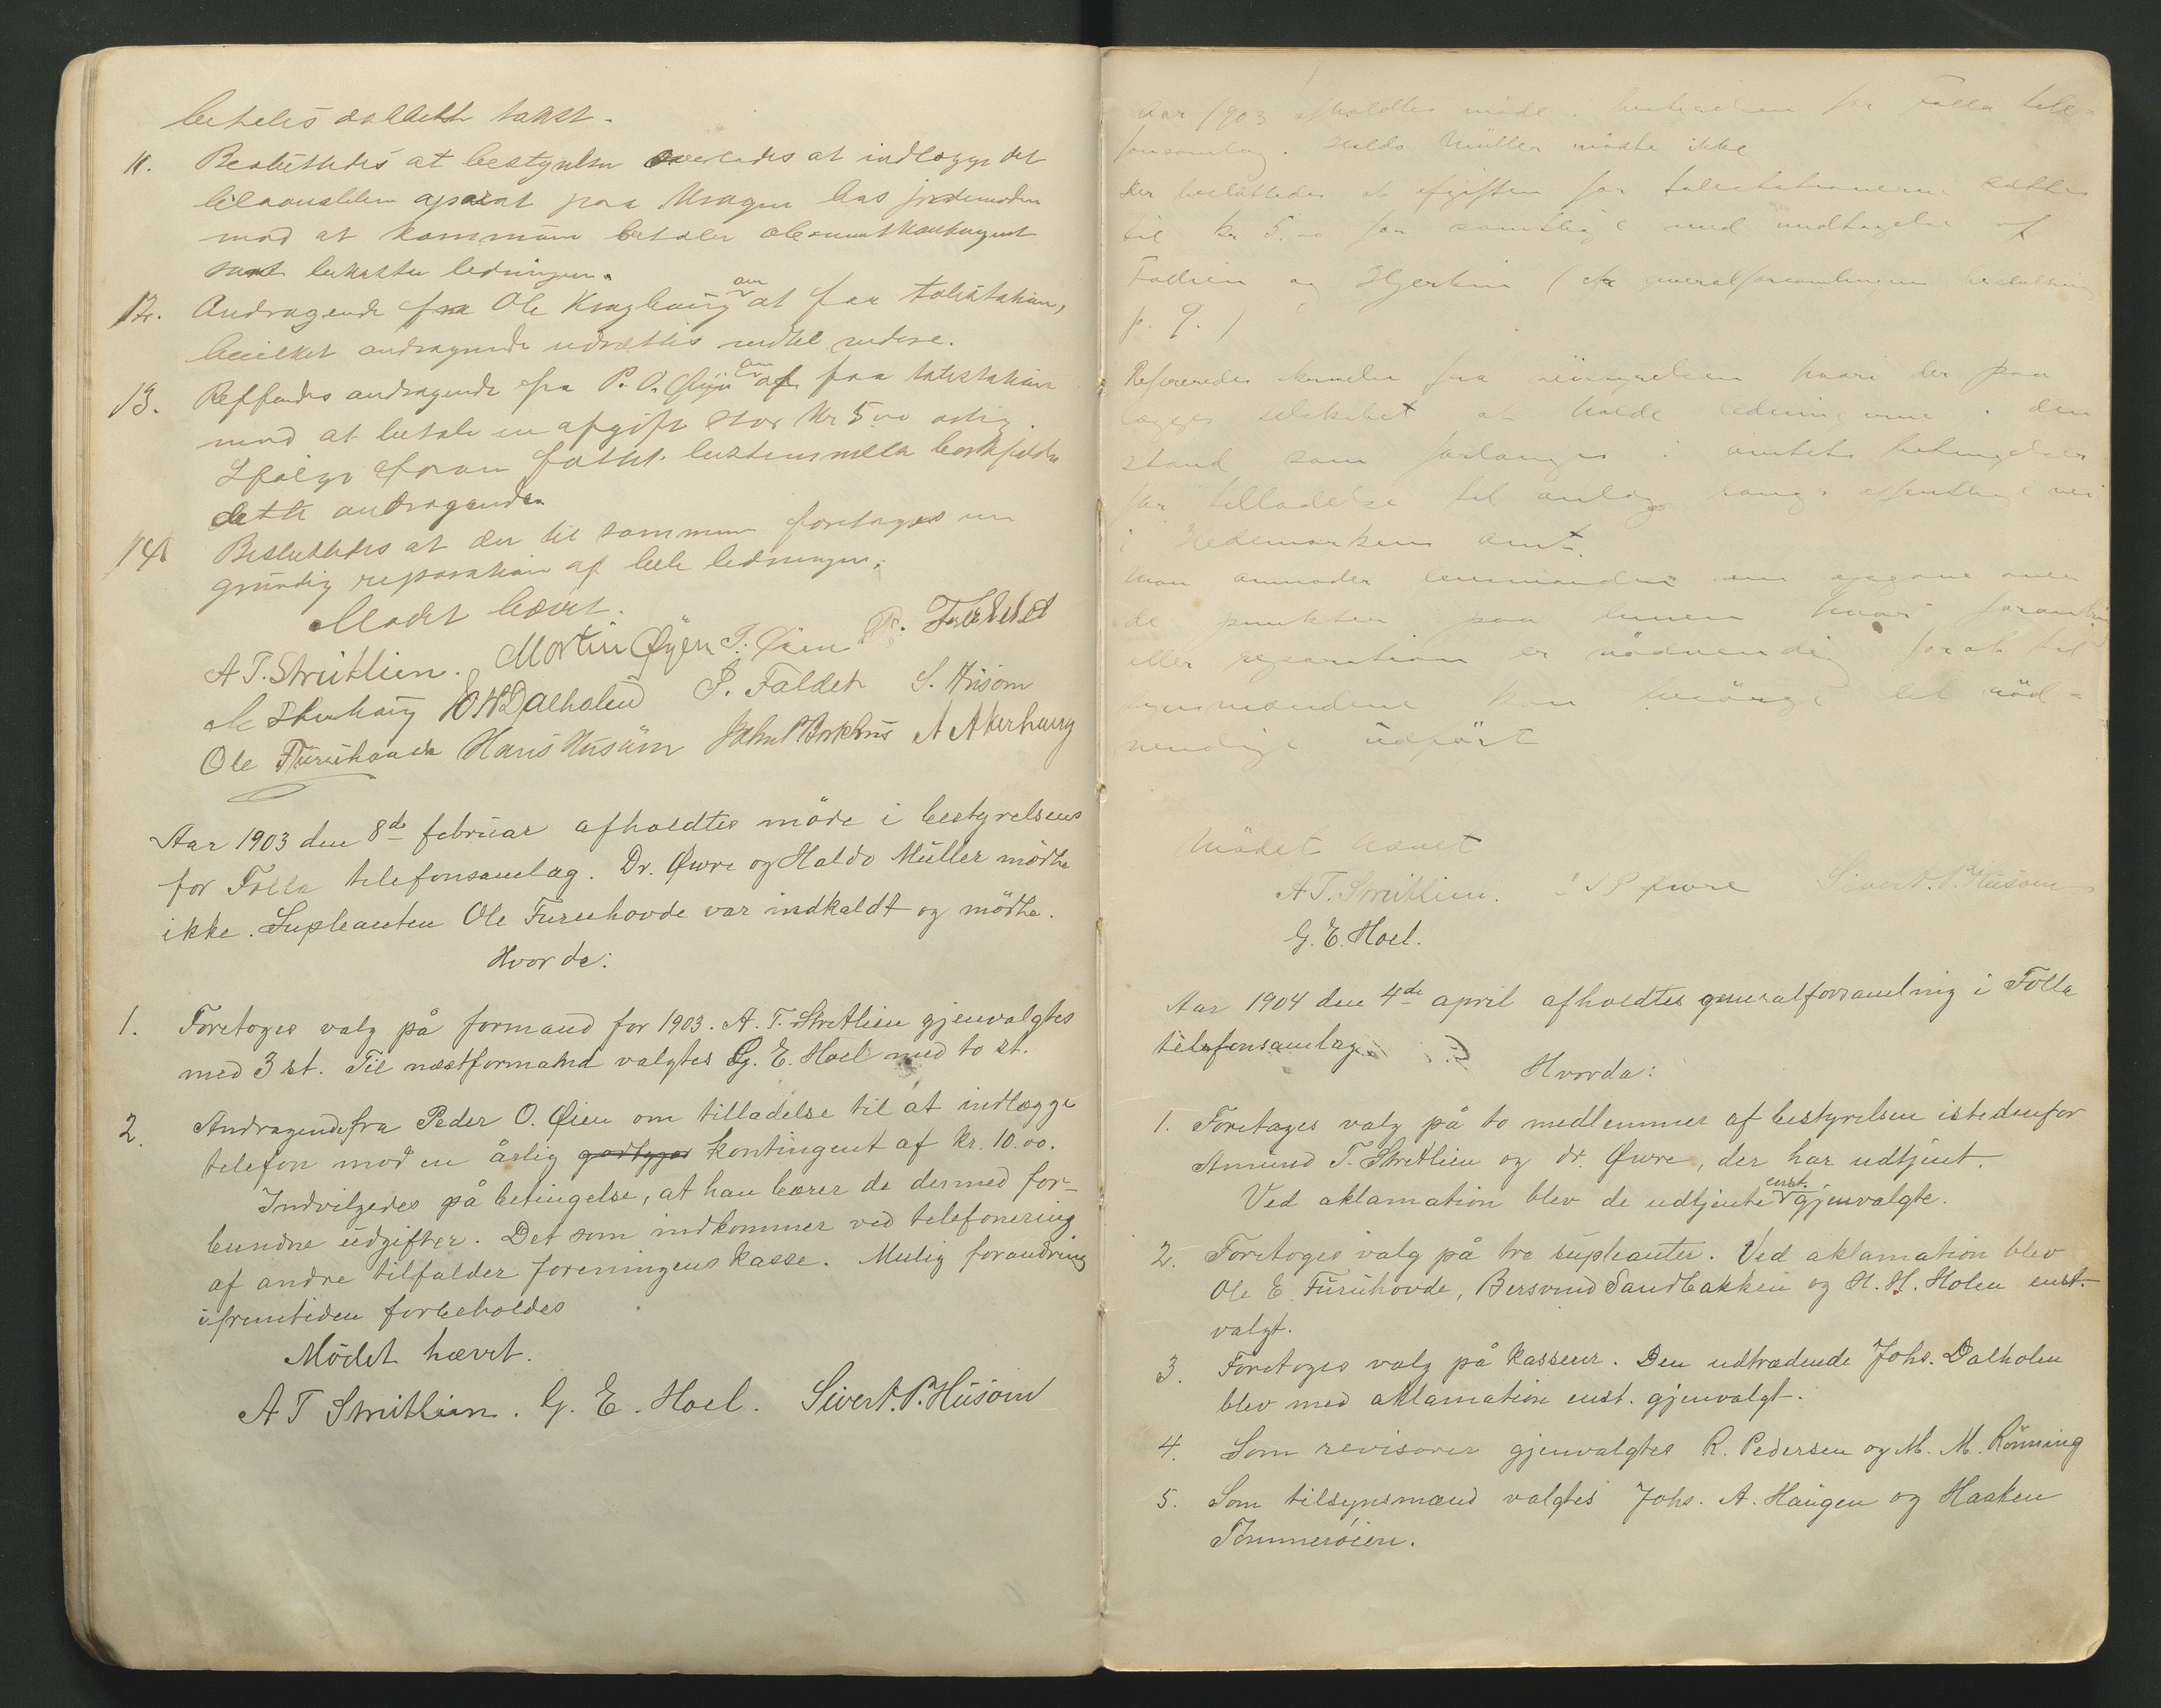 betales dobbelt takst.
11. Besluttedes at bestyrelsen overlades at indlægge det
apparat paa Kragen hos jordemoderen
mod at kommunen betaler abonnentkontingent
samt bekoster ledningen.
12. Andragende fra Ole Kraghaug om at faa talestation,
hvilket andragende udsættes indtil videre.
13. andragende fra P. O. Øyen om at faa talestation
mod at betale en afgift stor kr 5.00 aarlig.
Ifølge foran fattet bestemmelse bortfalder
dette andragende.
14. Besluttedes at der til sommeren foretages en
grundig reparation af hele ledningen.
Mødet hævet.
A T. Strætlien. Morten Øyen P. Øien P. Faldet
E H Dalholen P. Faldet S. Husom
Ole Furuhovde Hans Husum A Akerhaug
Aar 1903 den 8de februar afholdtes möde i bestyrelsens
for Folla telefonsamlag. Dr. Øwre og Haldo Müller mödte
ikke. Supleanten Ole Furuhovde var indkaldt og mödte.
Hvorda:
1. Foretoges valg på formand for 1903. A. T. Strætlien gjenvalgtes
med 3 st. Til næstformand valgtes G. E. Hoel med to st.
2. Andragende fra Peder O. Øien om tilladelse til at indlægge
telefon mod en årlig godtgjør kontingent af kr. 10.00.
Indvilgedes på betingelse, at han bærer de dermed for-
bundne udgifter. Det som indkommer ved telefonering
af andre tilfalder foreningens kasse. Mulig forandring
i fremtiden forbeholdes
Mödet hævet.
A T Strætlien. G. E. Hoel. Sivert. P. Husom
Aar 1903 afholdtes möde i bestyrelsen for Folla tele-
fonsamlag. Haldo Müller mödte ikke
Der besluttedes at afgiften for talestationerne sættes
til kr 5.00 for samtlige med undtagelse af
Follien og Hjerkin (se generalforsamlingens beslutning
p. 9.)
Refereredes skrivelse fra veistyrelsen hvori der paa
lægges selskabet at holde ledningerne i den
stand som forlanges i amtets betingelser
for tilladelse til anlæg langs offentlig vei
i Hedemarkens amt.
Man anmoder lensmanden om opgave over
de punkter paa linien hvor forandring
eller reparation er nödvendig forat til
synsmændene kan besörge det nöd-
vendige udfört
Mödet hævet
A T. Strætlien. P Øwre Sivert. P. Husom
G. E. Hoel.
Aar 1904 den 4de april afholdtes generalforsamling i Folla
telefonsamlag.
Hvorda:
1. Foretages valg på to medlemmer af bestyrelsen istedenfor
Amund T. Strætlien og dr. Øwre, der har udtjent.
Ved aklamation blev de udtjente enst. gjenvalgte.
2. Foretoges valg på tre supleanter. Ved aklamation blev
Ole E. Furuhovde, Bersvend Sandbakken og H. H. Holen enst.
valgt.
3. Foretoges valg på kasserer. Den udtrædende Johs. Dalholen
blev med aklamation enst. gjenvalgt.
4. Som revisorer gjenvalgtes R. Pedersen og M. M. Rönning
5. Som tilsynsmænd valgtes Johs. A. Haugen og Haaken
Tömmeröien.